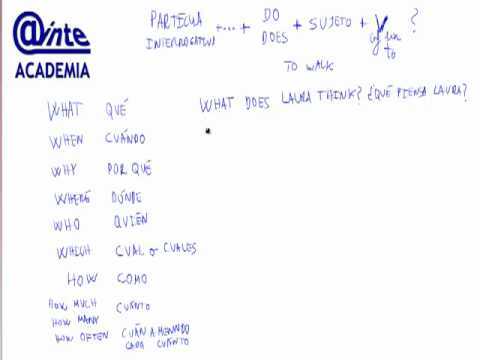 @inte
ACADEMIA
PARTÍCULA INTERROGATIVA +...+ DO DOES + SUJETO + V ?
TO WALK
WHAT DOES LAURA THINK? ¿QUÉ PIENSA LAURA?
WHAT QUÉ
WHEN CUÁNDO
WHY POR QUÉ
WHERE DÓNDE
WHO QUIÉN
WHICH CUAL o CUALES
HOW COMO
HOW MUCH
HOW MANY CUÁNTO
HOW OFTEN CUÁN A MENUDO
CADA CUÁNTO